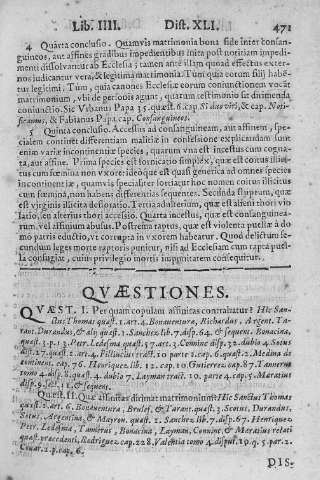 Lib. IIII. Dist. XLI. 471
4 Quarta conclusio. Quamvis matrimonia bona fide inter consan-
guineos, aut affines gradibus impedientibus inita post notitiam impedi-
menti dissolvantur ab Ecclesia; tamen ante illam quoad effectus exter-
nos iudicantur vera, & legitima matrimonia. Tum quia eorum filij habē-
tur legitimi. Tum, quia canones Ecclesiæ eorum coniunctionem vocāt
matrimonium, vbi de periodis agunt, quarum testimonio sit dirimenda
coniunctio. Sic Vrbanus Papa 35. quæst. 6. cap. Si duo viri, & cap. Noti-
ficamus, & Fabianus Papa cap. Consanguineos.
5 Quinta conclusio. Accessus ad consanguineam, aut affinem, spe-
cialem continet differentiam malitiæ in confessione explicandam sunt
enim variæ incontinentiæ species, quarum vna est incestus cum cogna-
ta, aut affine. Prima species est fornicatio simplex, quæ est coitus illici-
tus cum fœmina non vxore: ideoque est quasi generica ad omnes species
incontinentiæ, quamvis specialiter sortiatur hoc nomen coitus illicitus
cum fœmina, non habens differentias sequentes. Secunda stuprum, quæ
est virginis illicita defloratio. Tertia adulterium, quæ est alieni thori vio
latio, seu alterius thori accessio. Quarta incestus, quæ est consanguinea-
rum, vel affinium abusus. Postrema raptus, quæ est violenta puellæ à do
mo patris eductio, vt corrupta in vxorem habeatur. Quod delictum se-
cundum leges morte raptoris punitur, nisi ad Ecclesiam cum rapta puel-
la confugiat, cuius privilegio mortis impunitatem consequetur.
QVÆSTIONES.
QVÆST. I. Per quam copulam affinitas contrahatur? Hic San-
ctus Thomas quæst. 1. art. 4. Bonaventura, Richardus, Argent. Ta-
rant. Durandus, & alij quæst. 1. Sanchez lib. 7. disp. 64. & sequent. Bonacina,
quæst. 3. p. 13. Petr. Ledesma quæst. 57. art. 3. Coninc disp. 32. dubio 4. Scotus
dist. 27. quæst. 2. art. 4. Filliucius tract. 10. parte 1. cap. 6. quæst. 2. Medina de
continent. cap. 76. Henriquez lib. 12. cap. 10. Gutierrez cap. 87. Tannerus
tomo 4. disp. 8. quæst. 4. dubio 7. Layman tract. 10. parte 4. cap. 5. Maratius
disp. 9. sect. 11. & sequent.
Quæst. II. Quæ affinitas dirimat matrimonium? Hic Sanctus Thomas
quæst. 6. Bonaventura, Brulef. & Tarant. quæst. 3. Scotus, Durandus,
Sotus, Argentina, & Mayron. quæst. 2. Sanchez lib. 7. disp. 67. Henriquez
Petr. Ledesma, Tannerus, Bonacina, Layman, Coninc, & Maratius relati
quæst. præcedenti, Rodriguez cap. 228. Valentia tomo 4. disput. 19. q. 5. par. 2.
Couar. 2. p. cap. 6.
DIS-